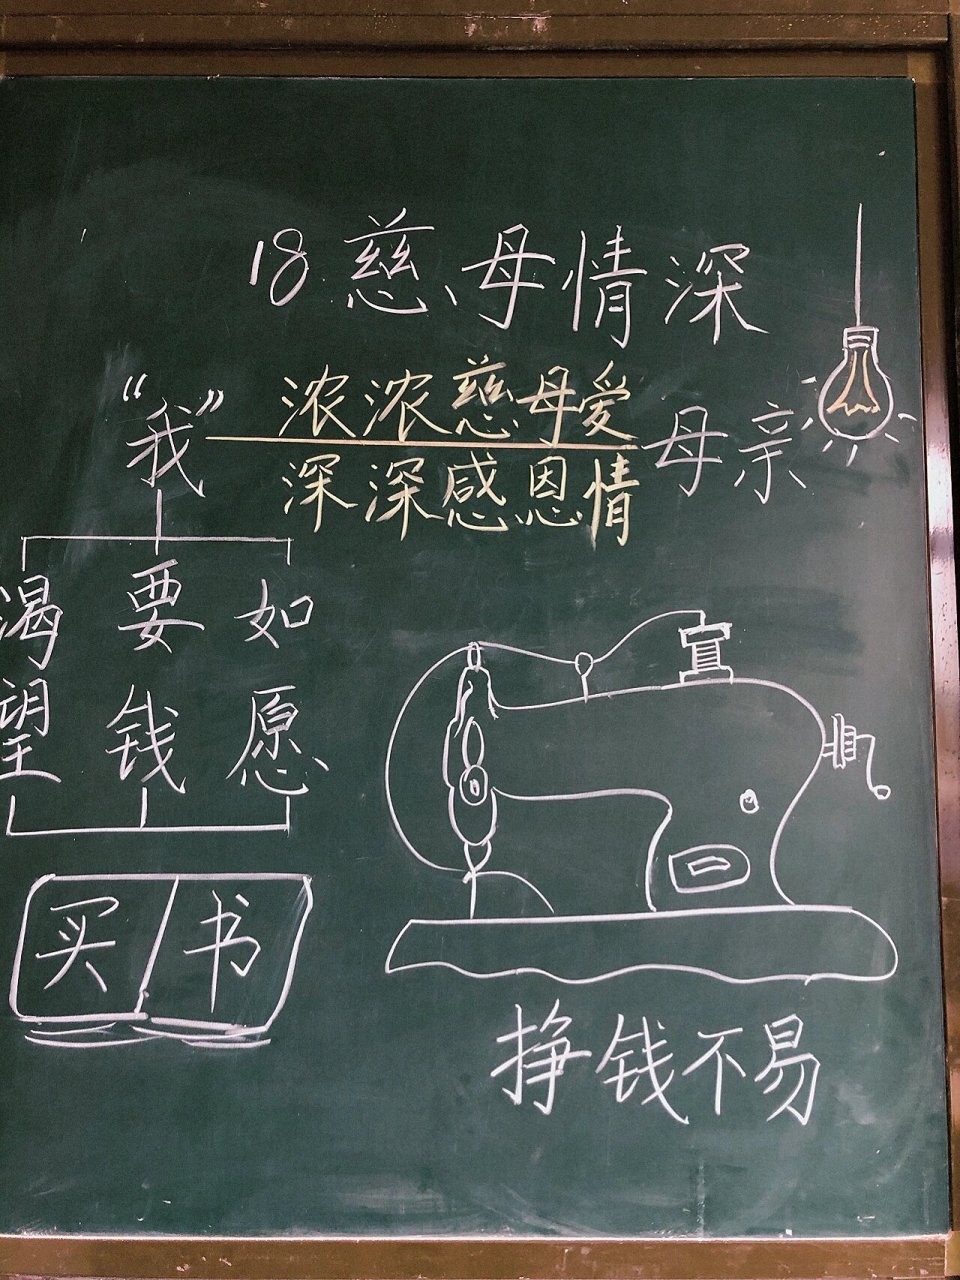 18 慈母情深
浓浓慈母爱
“我” 母亲
深深感恩情
渴望 要钱 如愿
买书
挣钱不易